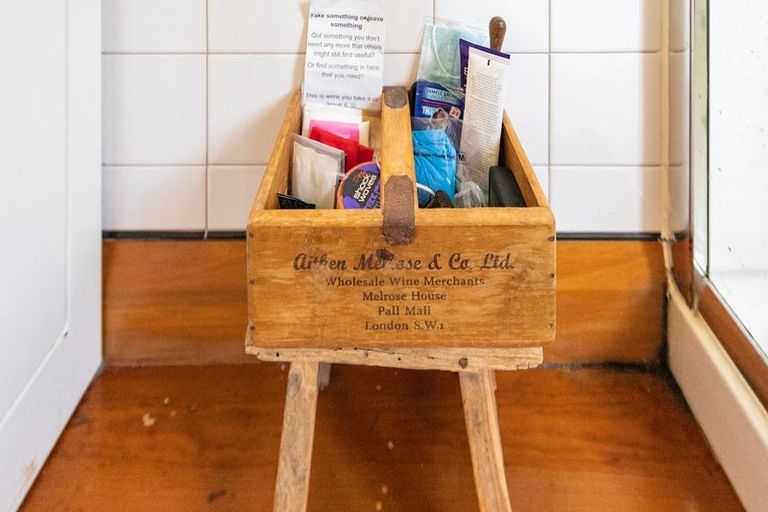 Take something or leave
something
Got something you don't
need any more that others
might still find useful?
Or find something in here
that you need?
This is were you take it or
shock
waves
Aitken Melrose & Co. Ltd.
Wholesale Wine Merchants
Melrose House
Pall Mall
London S.W.1